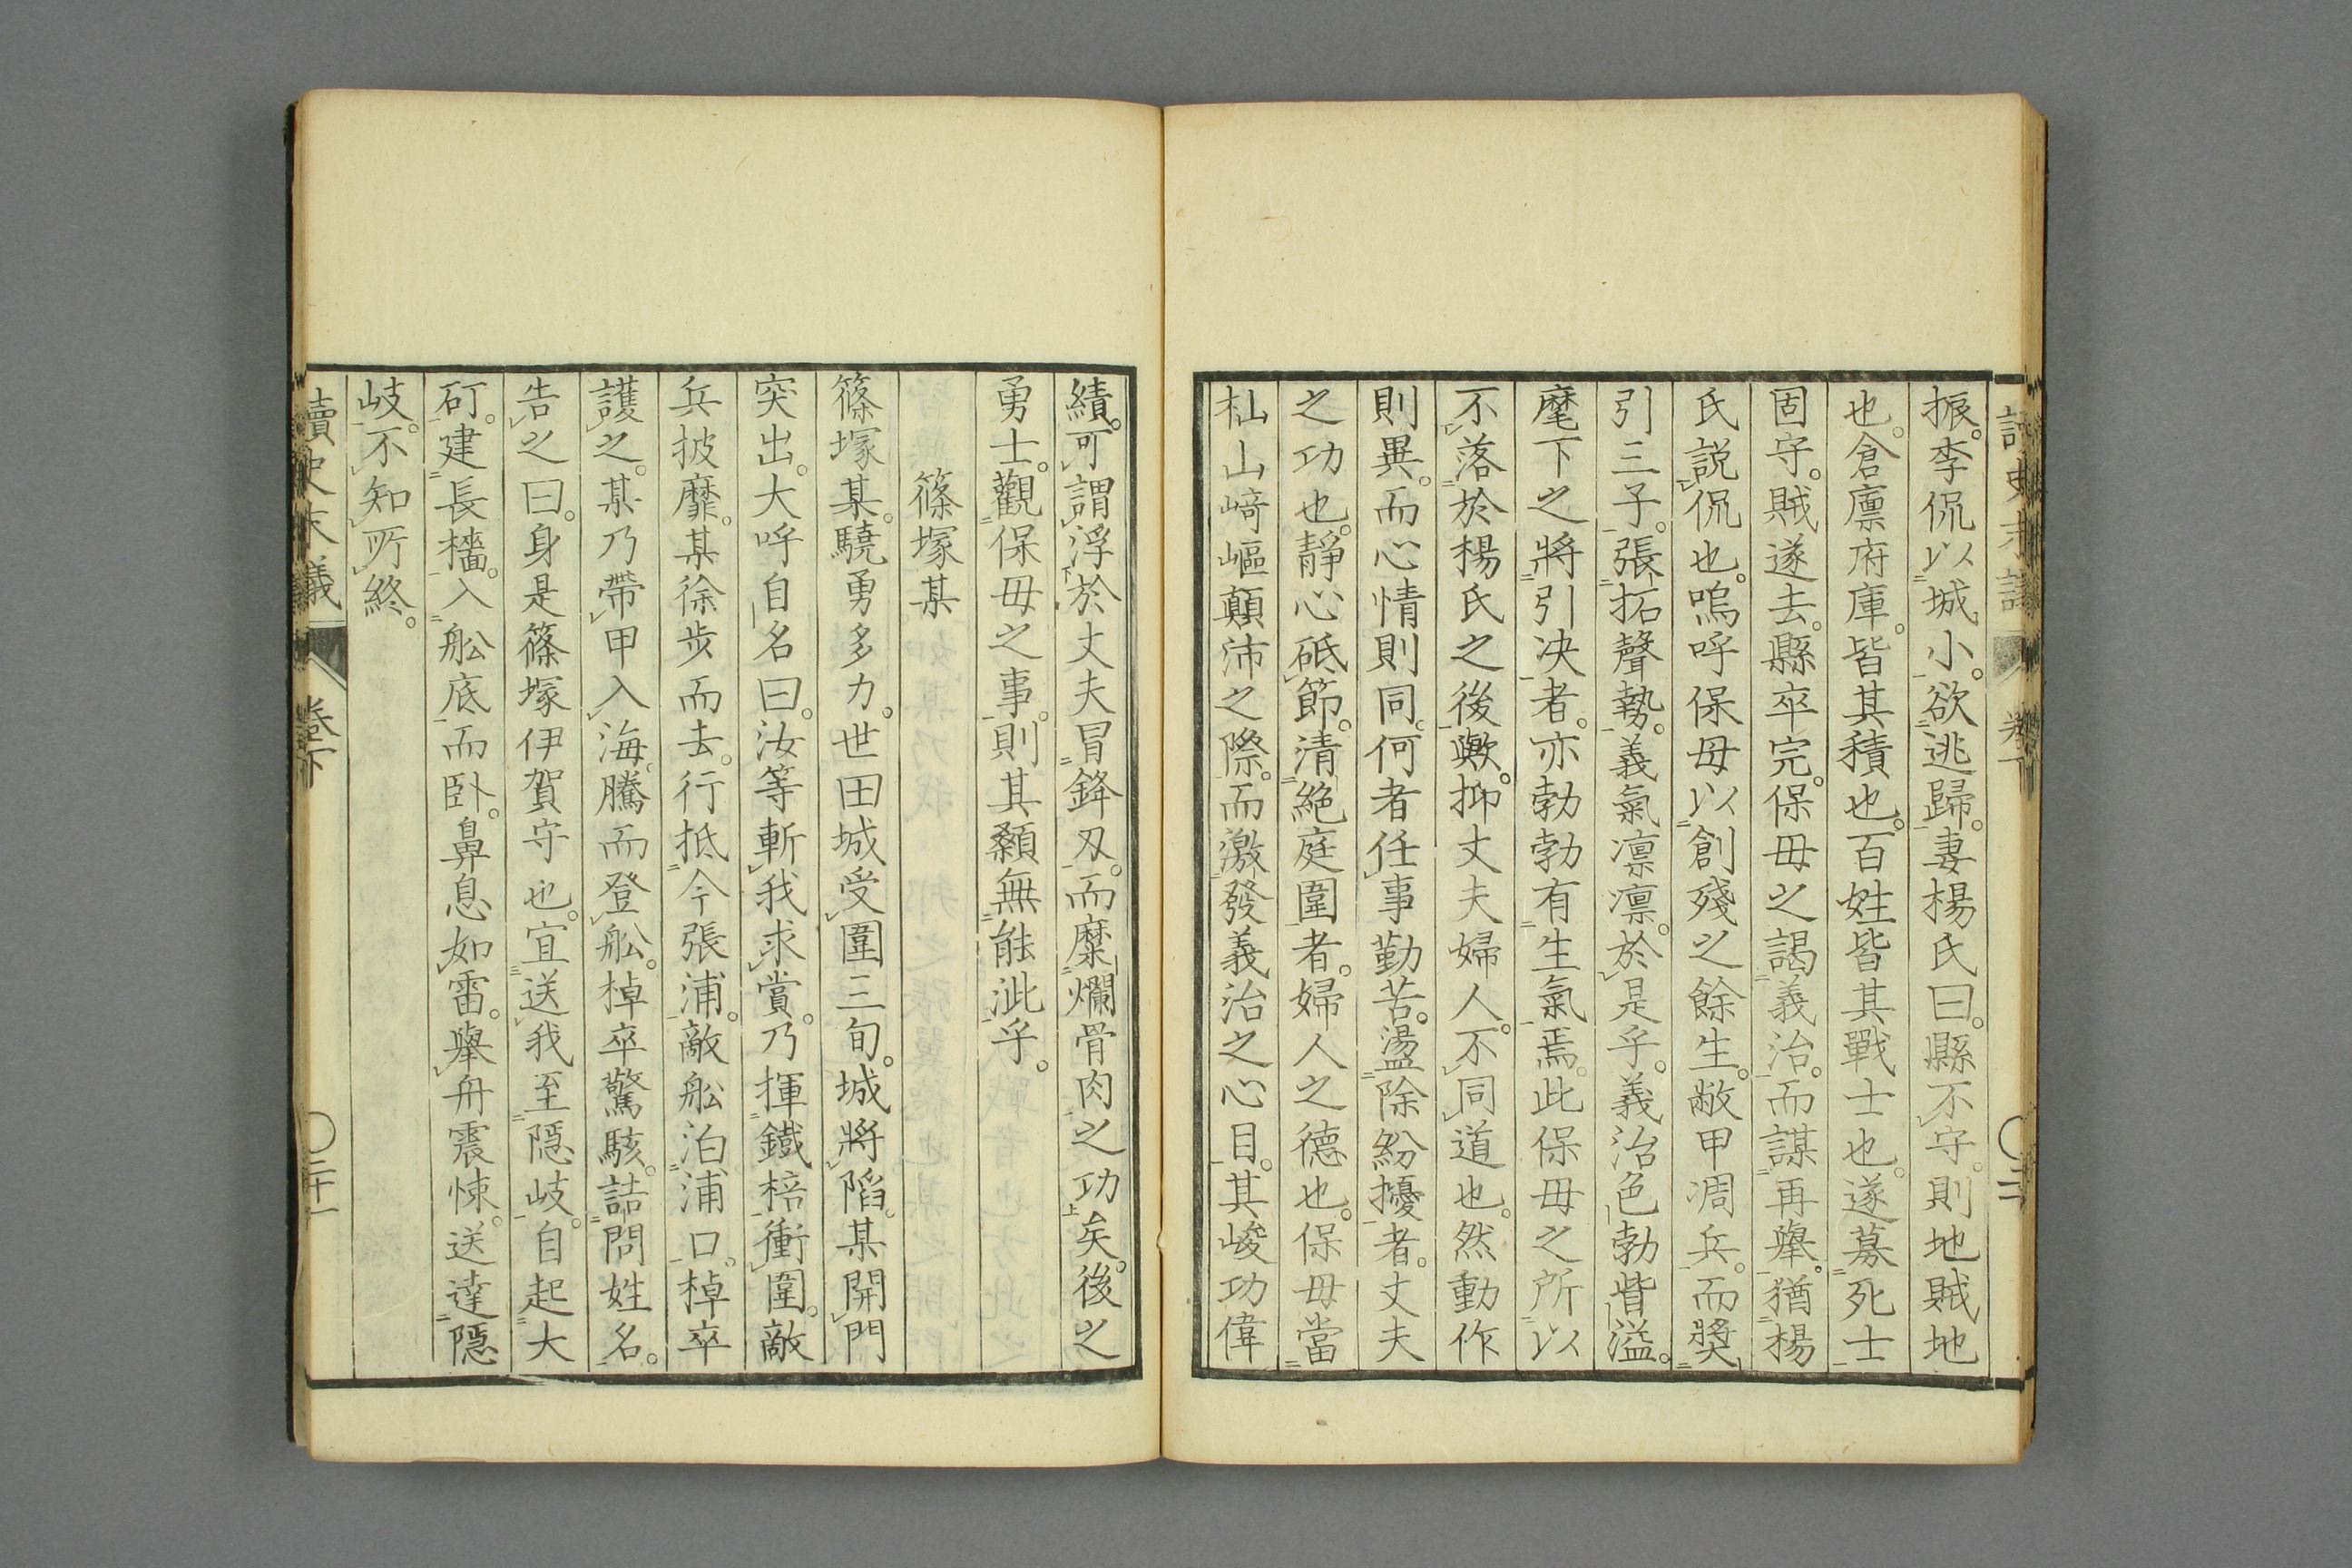 振。李侃以城小。欲逃歸。妻楊氏曰。縣不守。則地賊地
也。倉廩府庫。皆其積也。百姓皆其戰士也。遂募死士
固守。賊遂去。縣卒完。保毋之謁義治。而謀再舉。猶楊
氏說侃也。嗚呼保毋以創殘之餘生。敝甲凋兵。而奬
引三子。張拓聲勢。義氣凛凛。於是乎。義治色勃眥溢。
麾下之將引决者。亦勃勃有生氣焉。此保毋之所以
不落於楊氏之後歟。抑丈夫婦人。不同道也。然動作
則異。而心情則同。何者任事勤苦。盪除紛擾者。丈夫
之功也。靜心砥節。清絕庭圍者。婦人之德也。保毋當
杣山﨑嶇顛沛之際。而激發義治之心目。其峻功偉
績。可謂浮於丈夫冒鋒刄。而糜爛骨肉之功矣。後之
勇士。觀保毋之事。則其顙無能泚乎。
篠塚某
篠塚某。驍勇多力。世田城受圍三旬。城將陷。某開門
突出。大呼自名曰。汝等斬我求賞。乃揮鐵棓衝圍。敵
兵披靡。某徐步而去。行抵今張浦。敵舩泊浦口。棹卒
護之。某乃帶甲入海。騰而登舩。棹卒驚駭。詰問姓名。
告之曰。身是篠塚伊賀守也。宜送我至隱岐。自起大
矴。建長檣。入舩底而臥。鼻息如雷。舉舟震悚。送達隱
岐。不知所終。
讀史末議 卷下 二十一